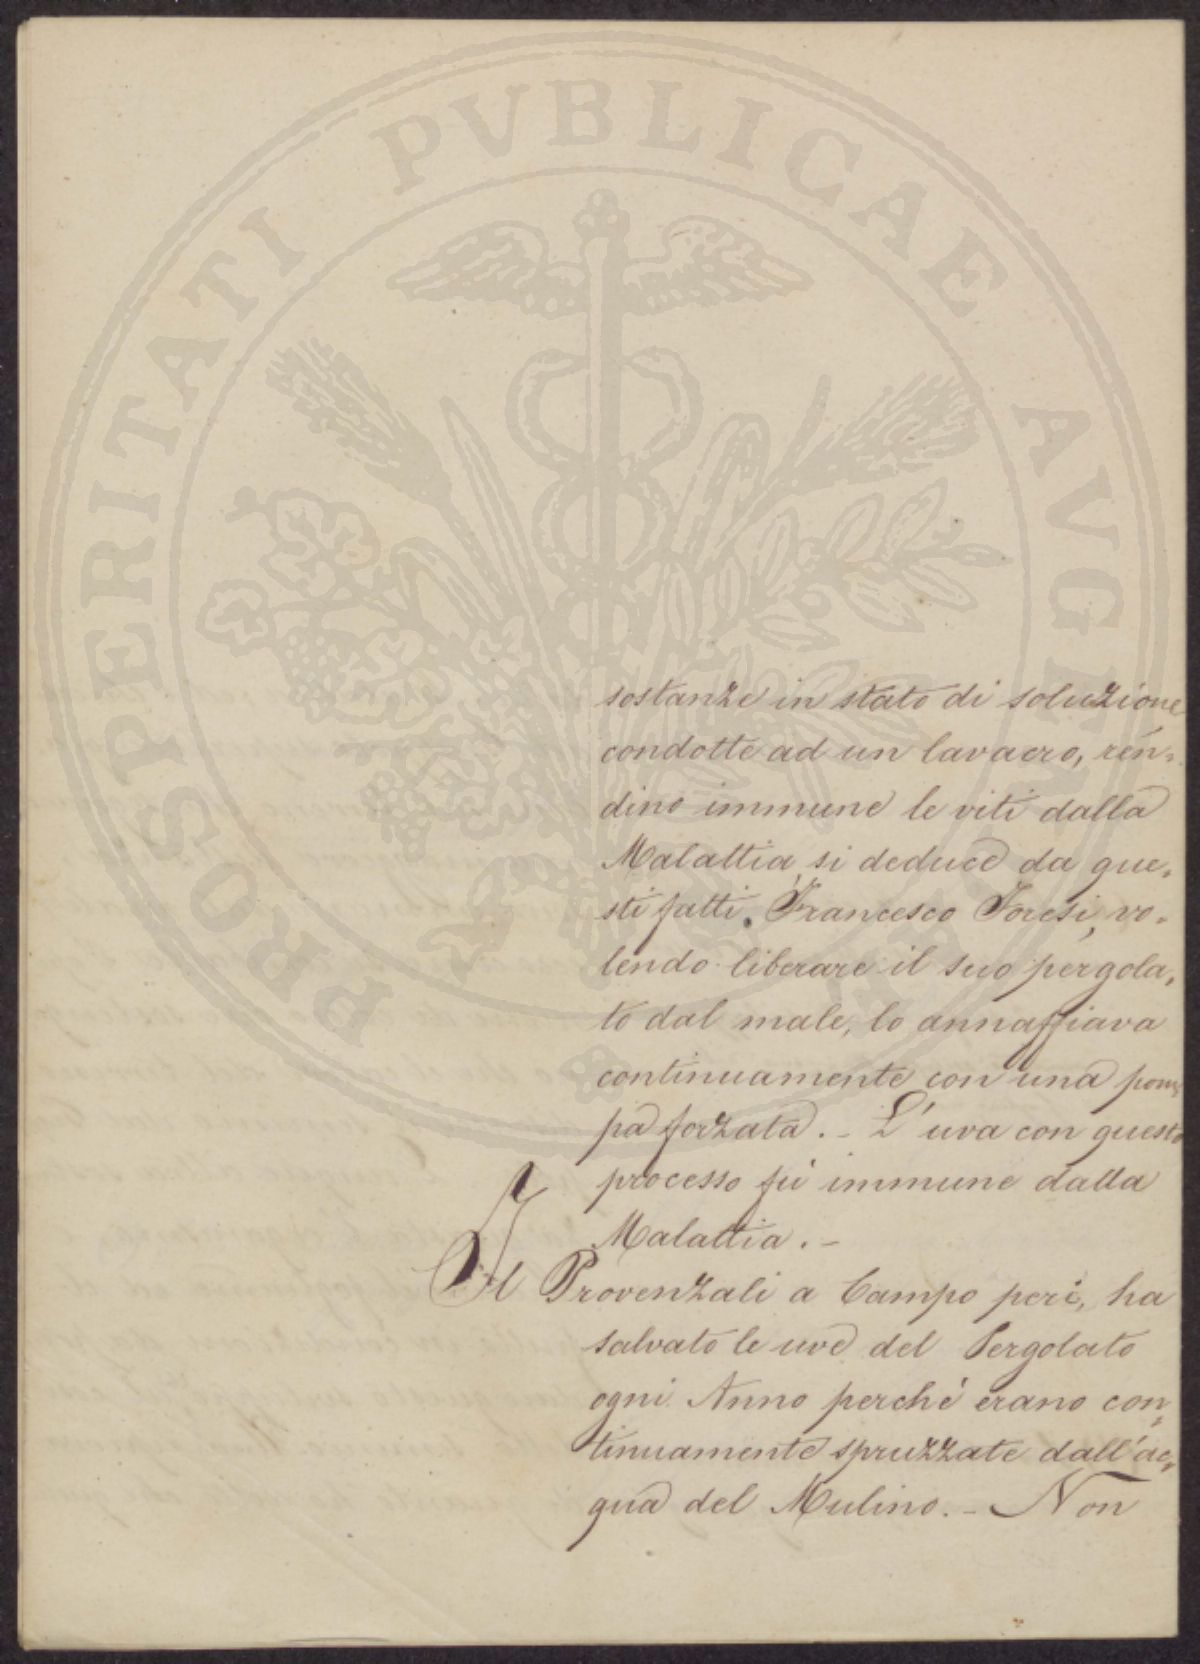 PROSPERITATI PVBLICAE AVGENDAE
sostanze in stato di soluzione
condotte ad un lavacro, ren=
dino immune le viti dalla
Malattia, si deduce da que=
sti fatti. Francesco Foresi, vo=
lendo liberare il suo pergola=
to dal male, lo annaffiava
continuamente con una pom=
pa forzata. - L'uva con questo
processo fù immune dalla
Malattia. -
Il Provenzali a Campo peri, ha
salvato le uve del Pergolato
ogni Anno perchè erano con=
tinuamente spruzzate dall'ac=
qua del Mulino. - Non